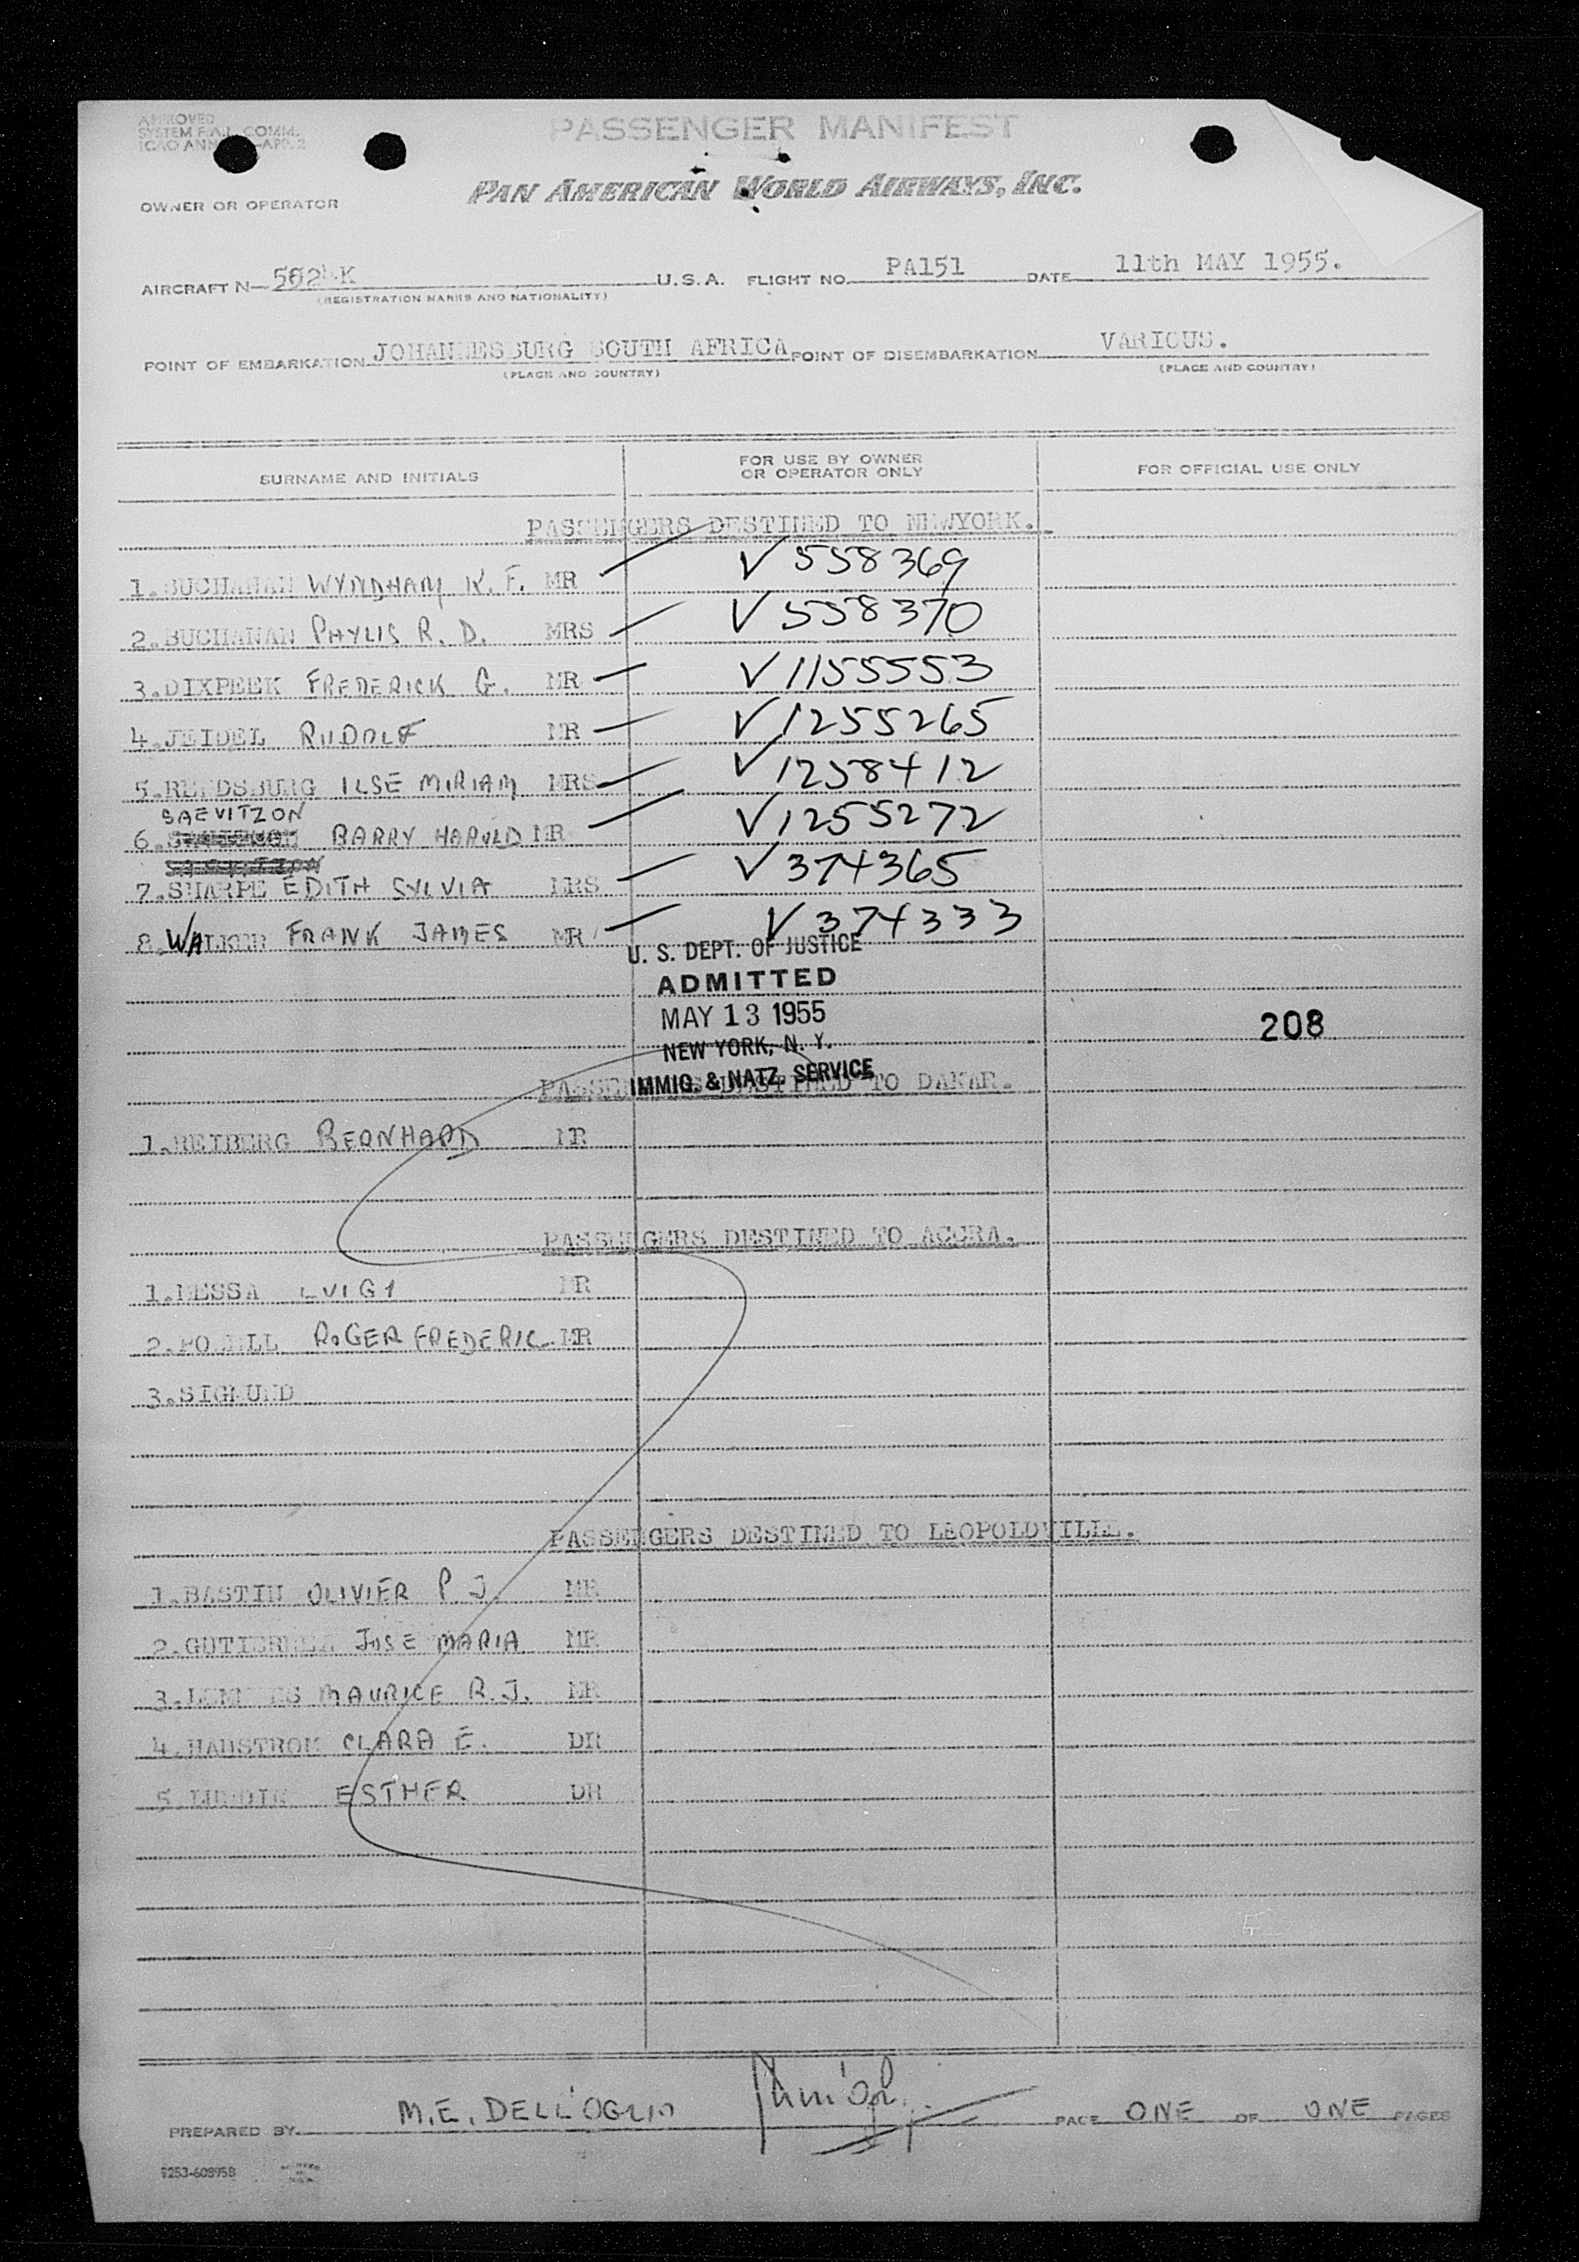 APPROVED
SYSTEM F.A.L. COMM.
ICAO ANN
PASSENGER MANIFEST
PAN AMERICAN WORLD AIRWAYS, INC.
OWNER OR OPERATOR
AIRCRAFT N- U.S.A. FLIGHT NO. PA151 DATE 11th MAY 1955.
(REGISTRATION MARKS AND NATIONALITY)
POINT OF EMBARKATION JOHANNESBURG SOUTH AFRICA POINT OF DISEMBARKATION VARIOUS.
(PLACE AND COUNTRY) (PLACE AND COUNTRY)
SURNAME AND INITIALS FOR USE BY OWNER OR OPERATOR ONLY FOR OFFICIAL USE ONLY
PASSENGERS DESTINED TO NEWYORK.
1.BUCHANAN WYNDHAM K. F. MR V 558369
2.BUCHANAN PHYLIS R. D. MRS V 558370
3.DIXPEEK FREDERICK G. MR V 1155553
4.JEIDEL RUDOLF MR V 1255265
5.RENDSBURG ILSE MIRIAM MRS V 1258412
SAEVITZON
6. BARRY HAROLD MR V 1255272
7.SHARPE EDITH SYLVIA MRS V 374365
8.WALKER FRANK JAMES MR V 374333
U. S. DEPT. OF JUSTICE
ADMITTED
MAY 13 1955
NEW YORK, N. Y.
IMMIG. & NATZ. SERVICE
208
PASSENGERS DESTINED TO DAKAR.
1.REIBERG BERNHARD MR
PASSENGERS DESTINED TO ACCRA.
1.MESSA LUIGI MR
2.POWELL ROGER FREDERIC MR
3.SIGMUND
PASSENGERS DESTINED TO LEOPOLDVILLE.
1.BASTIN OLIVIER P J. MR
2.GUTIERREZ JOSE MARIA MR
3. MAURICE R.J. MR
4. CLARA E. DR
5. ESTHER DR
PREPARED BY M.E. DELL'OGLIO PAGE ONE OF ONE PAGES
9253-608958